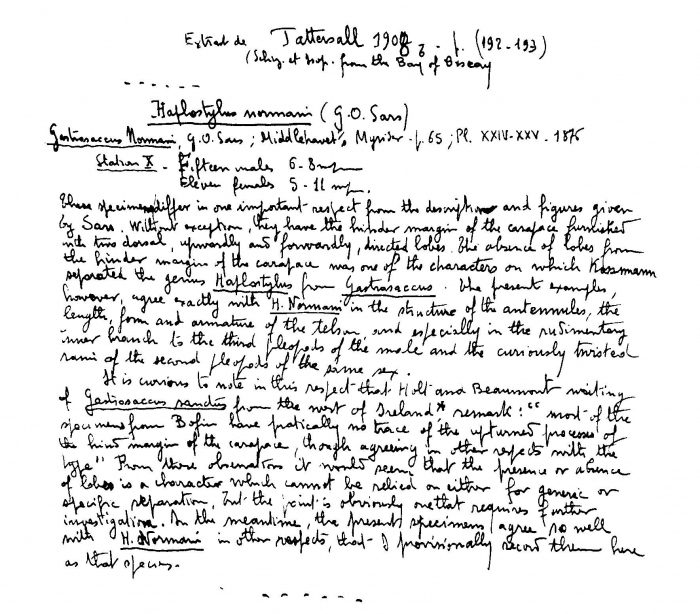 Extrait de Tattersall 1908 p. (192-193)
(Schiz. et Isop. from the Bay of Biscay
Haplostylus normani (G.O. Sars)
Gastrosaccus Normani, G.O. Sars; Middelhavet's Mysider. p. 65; Pl. XXIV-XXV. 1876
Station X - Fifteen males 6-8 mm
Eleven females 5-11 mm.
These specimens differ in one important respect from the description and figures given
by Sars. Without exception, they have the hinder margin of the carapace furnished
with two dorsal, upwardly and forwardly, directed lobes. The absence of lobes from
the hinder margin of the carapace was one of the characters on which Kossmann
separated the genus Haplostylus from Gastrosaccus. The present examples,
however, agree exactly with H. Normani in the structure of the antennules, the
length, form and armature of the telson, and especially in the rudimentary
inner branch to the third pleopods of the male and the curiously twisted
rami of the second pleopods of the same sex.
It is curious to note in this respect that Holt and Beaumont writing
of Gastrosaccus sanctus from the west of Ireland* remark: "most of the
specimens from Bofin have pratically no trace of the upturned processes of
the hind margin of the carapace, though agreeing in other respects with the
type" From these observations it would seem that the presence or absence
of lobes is a character which cannot be relied on either for generic or
specific separation, but the point is obviously one that requires further
investigation. In the meantime, the present specimens agree so well
with H. Normani in other respects, that I provisionally record them here
as that species.